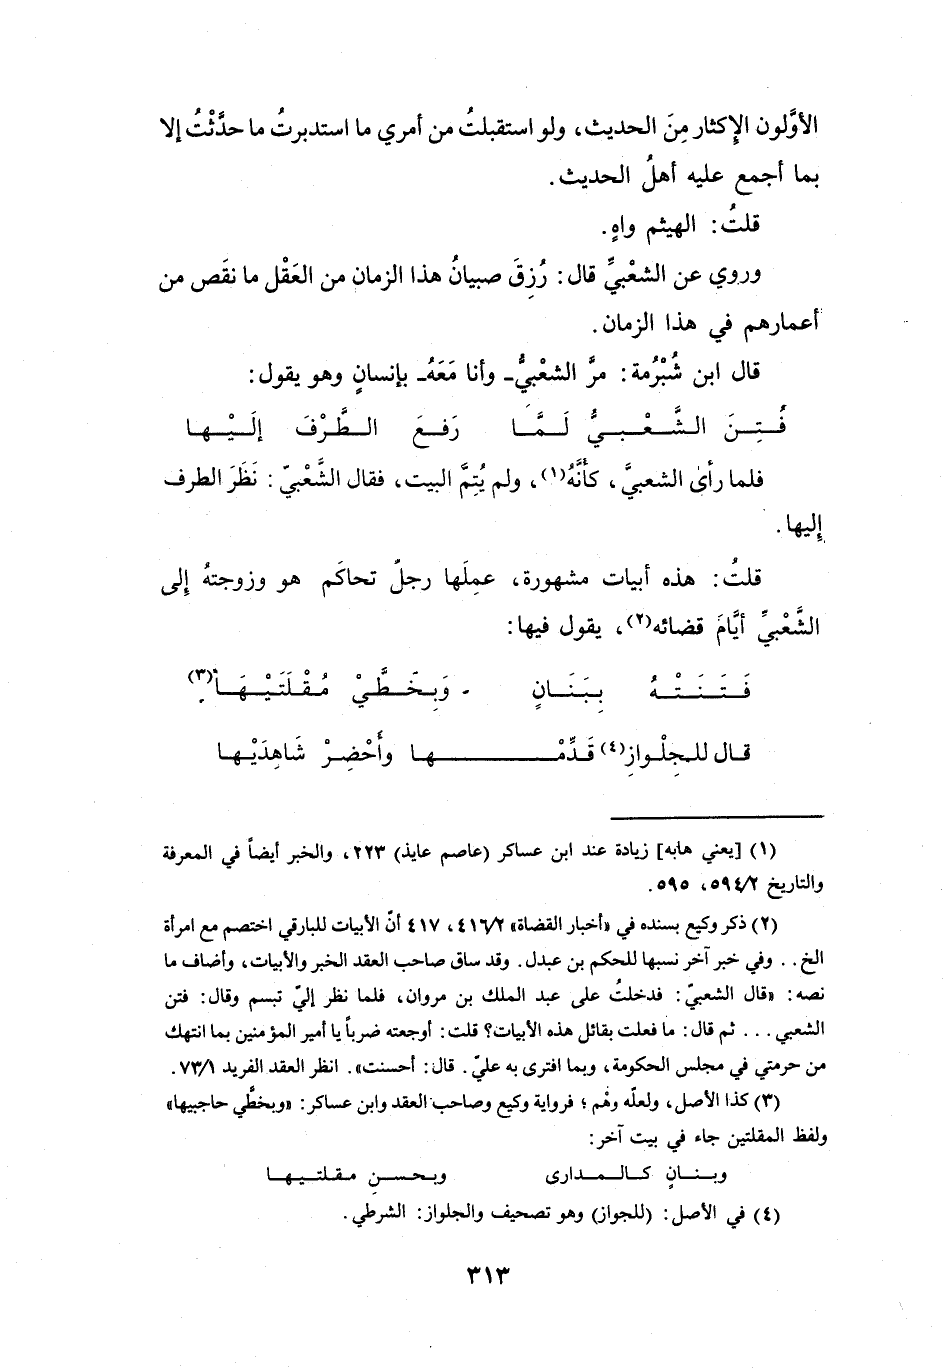 الأوَّلون الإِكثار مِنَ الحديث، ولو استقبلتُ من أمري ما استدبرتُ ما حدَّثْتُ إلا
بما أجمع عليه أهلُ الحديث.
قلتُ: الهيثم واهٍ.
وروي عن الشعْبيِّ قال: رُزِقَ صبيانُ هذا الزمان من العَقْل ما نقَص من
أعمارهم في هذا الزمان.
قال ابن شُبْرُمة: مرَّ الشعْبيُّ ـ وأنا مَعَهُ ـ بإنسانٍ وهو يقول:
فُتِنَ الشَّعْبيُّ لَمَّا رَفعَ الطَّرْفَ إلَيْها
فلما رأى الشعبيَّ، كأنَّهُ(١)، ولم يُتِمَّ البيت، فقال الشَّعْبيّ: نَظَرَ الطرف
إليها.
قلتُ: هذه أبيات مشهورة، عمِلَها رجلٌ تحاكَم هو وزوجتهُ إلى
الشَّعْبيِّ أيَّامَ قضائه(٢)، يقول فيها:
فَتَنَتْهُ بِبَنَانٍ وَبِخَطَّيْ مُقْلَتَيْهَا(٣)
قال للجِلْوازِ(٤) قَدِّمْها وأَحْضِرْ شَاهِدَيْها
(١) [يعني هابه] زيادة عند ابن عساكر (عاصم عايذ) ٢٢٣، والخبر أيضاً في المعرفة
والتاريخ ٥٩٤/٢، ٥٩٥.
(٢) ذكر وكيع بسنده في «أخبار القضاة» ٤١٦/٢، ٤١٧ أنّ الأبيات للبارقي اختصم مع امرأة
الخ.. وفي خبر آخر نسبها للحكم بن عبدل. وقد ساق صاحب العقد الخبر والأبيات، وأضاف ما
نصه: «قال الشعبيّ: فدخلتُ على عبد الملك بن مروان، فلما نظر إليّ تبسم وقال: فتن
الشعبي... ثم قال: ما فعلت بقائل هذه الأبيات؟ قلت: أوجعته ضرباً يا أمير المؤمنين بما انتهك
من حرمتي في مجلس الحكومة، وبما افترى به عليّ. قال: أحسنت». انظر العقد الفريد ٧٣/١.
(٣) كذا الأصل، ولعلّه وهْم؛ فرواية وكيع وصاحب العقد وابن عساكر: «وبخطَّي حاجبيها»
ولفظ المقلتين جاء في بيت آخر:
وبنانٍ كالمدارى وبحسنِ مقلتيها
(٤) في الأصل: (للجواز) وهو تصحيف والجلواز: الشرطي.
٣١٣